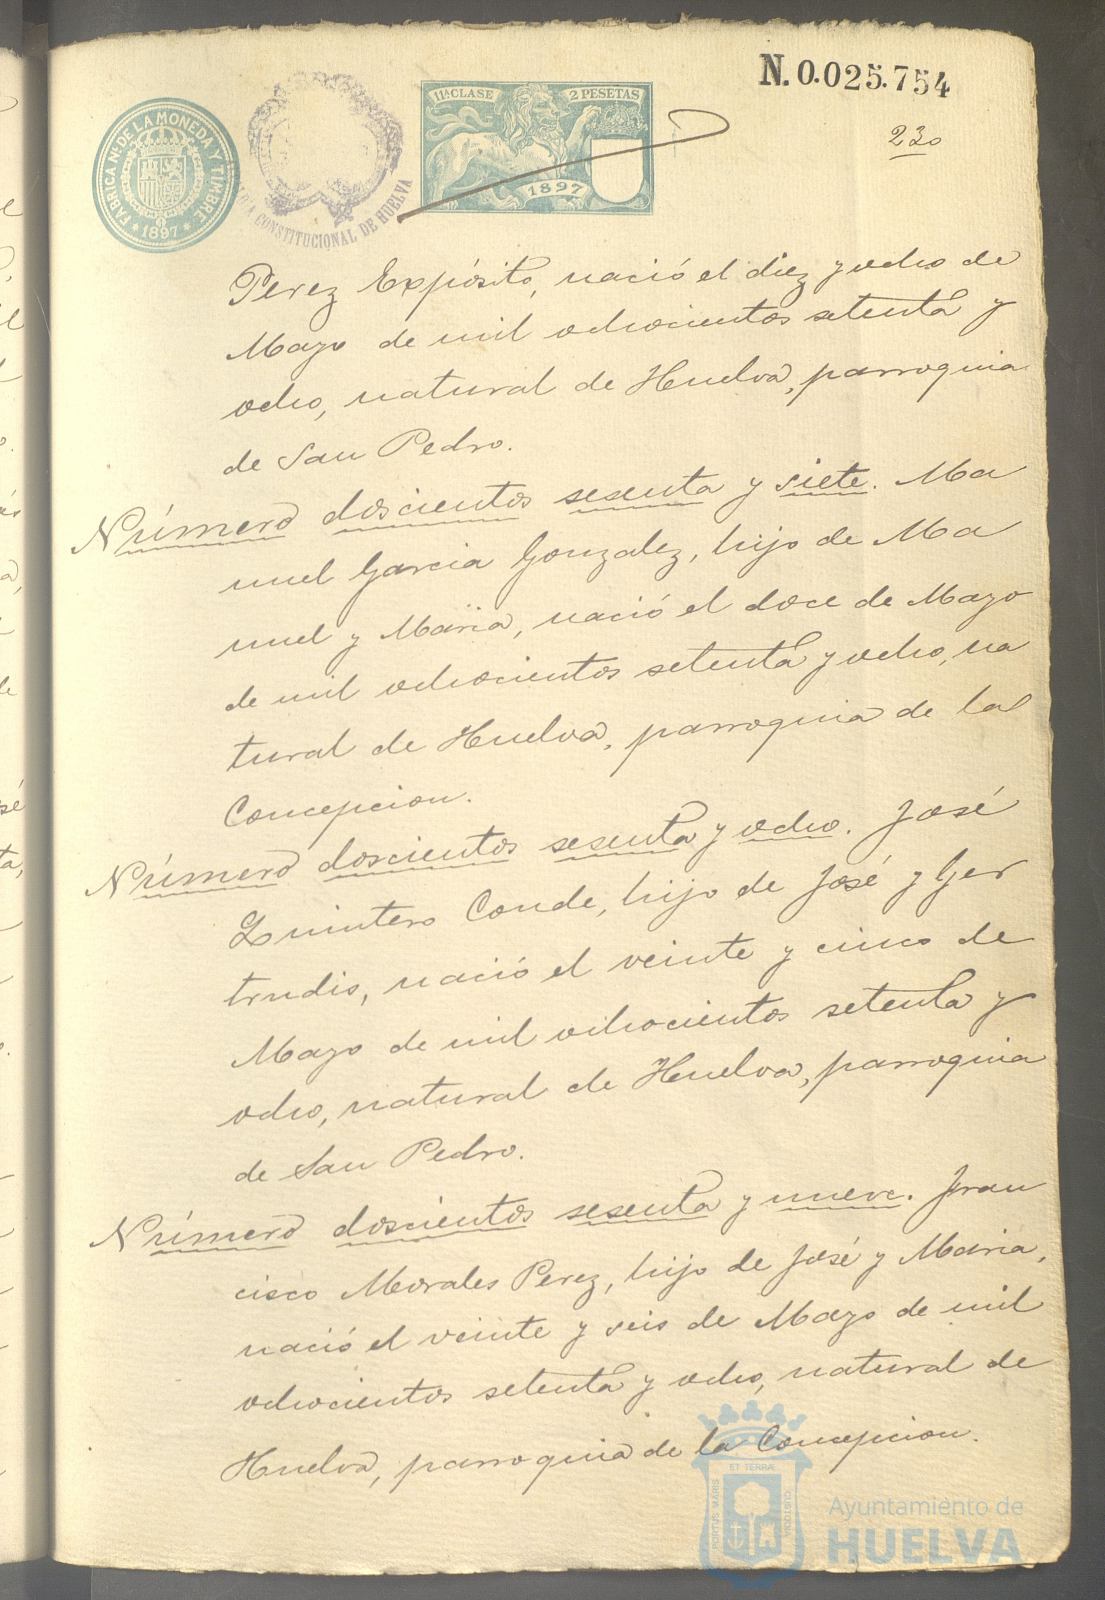 N. 0.025.754
230
FABRICA Nl. DE LA MONEDA Y TIMBRE
* 1897 *
CONSTITUCIONAL DE HUELVA
11ª CLASE 2 PESETAS
1897
Perez Expósito, nació el diez y ocho de
Mayo de mil ochocientos setenta y
ocho, natural de Huelva, parroquia
de San Pedro.
Número doscientos sesenta y siete. Ma
nuel Garcia Gonzalez, hijo de Ma
nuel y Maria, nació el doce de Mayo
de mil ochocientos setenta y ocho, na
tural de Huelva, parroquia de la
Concepcion.
Número doscientos sesenta y ocho. José
Quintero Conde, hijo de José y Ger
trudis, nació el veinte y cinco de
Mayo de mil ochocientos setenta y
ocho, natural de Huelva, parroquia
de San Pedro.
Número doscientos sesenta y nueve. Fran
cisco Morales Perez, hijo de José y Maria,
nació el veinte y seis de Mayo de mil
ochocientos setenta y ocho, natural de
Huelva, parroquia de la Concepcion.
PORTUS MARIS ET TERRÆ CUSTODIA
Ayuntamiento de
HUELVA